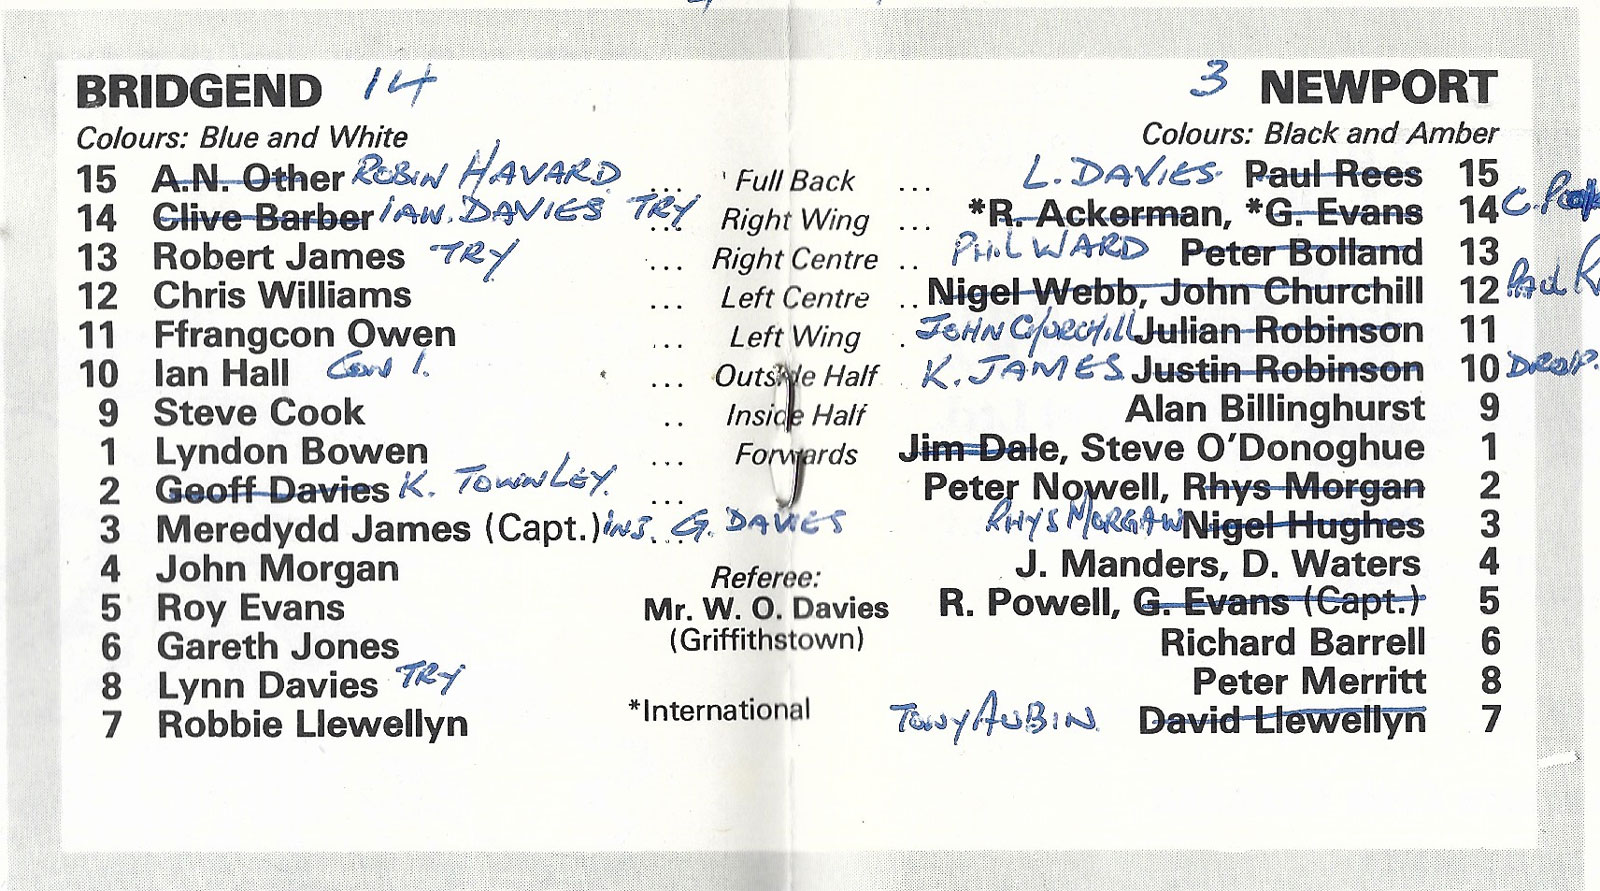 BRIDGEND 14 3 NEWPORT
Colours: Blue and White Colours: Black and Amber
15 A.N. Other ROBIN HAVARD ... Full Back ... L. DAVIES Paul Rees 15
14 Clive Barber IAN. DAVIES TRY ... Right Wing ... *R. Ackerman, *G. Evans 14 C.
13 Robert James TRY ... Right Centre .. PHIL WARD Peter Bolland 13
12 Chris Williams ... Left Centre .. Nigel Webb, John Churchill 12 PAUL R
11 Ffrangcon Owen ... Left Wing . JOHN CHURCHILL Julian Robinson 11
10 Ian Hall Con 1. ... Outside Half K. JAMES Justin Robinson 10 DROP.
9 Steve Cook .. Inside Half Alan Billinghurst 9
1 Lyndon Bowen ... Forwards Jim Dale, Steve O'Donoghue 1
2 Geoff Davies K. TOWNLEY. ... Peter Nowell, Rhys Morgan 2
3 Meredydd James (Capt.) INJ. G. DAVIES RHYS MORGAN Nigel Hughes 3
4 John Morgan Referee: J. Manders, D. Waters 4
5 Roy Evans Mr. W. O. Davies R. Powell, G. Evans (Capt.) 5
6 Gareth Jones (Griffithstown) Richard Barrell 6
8 Lynn Davies TRY Peter Merritt 8
7 Robbie Llewellyn *International TONY AUBIN David Llewellyn 7